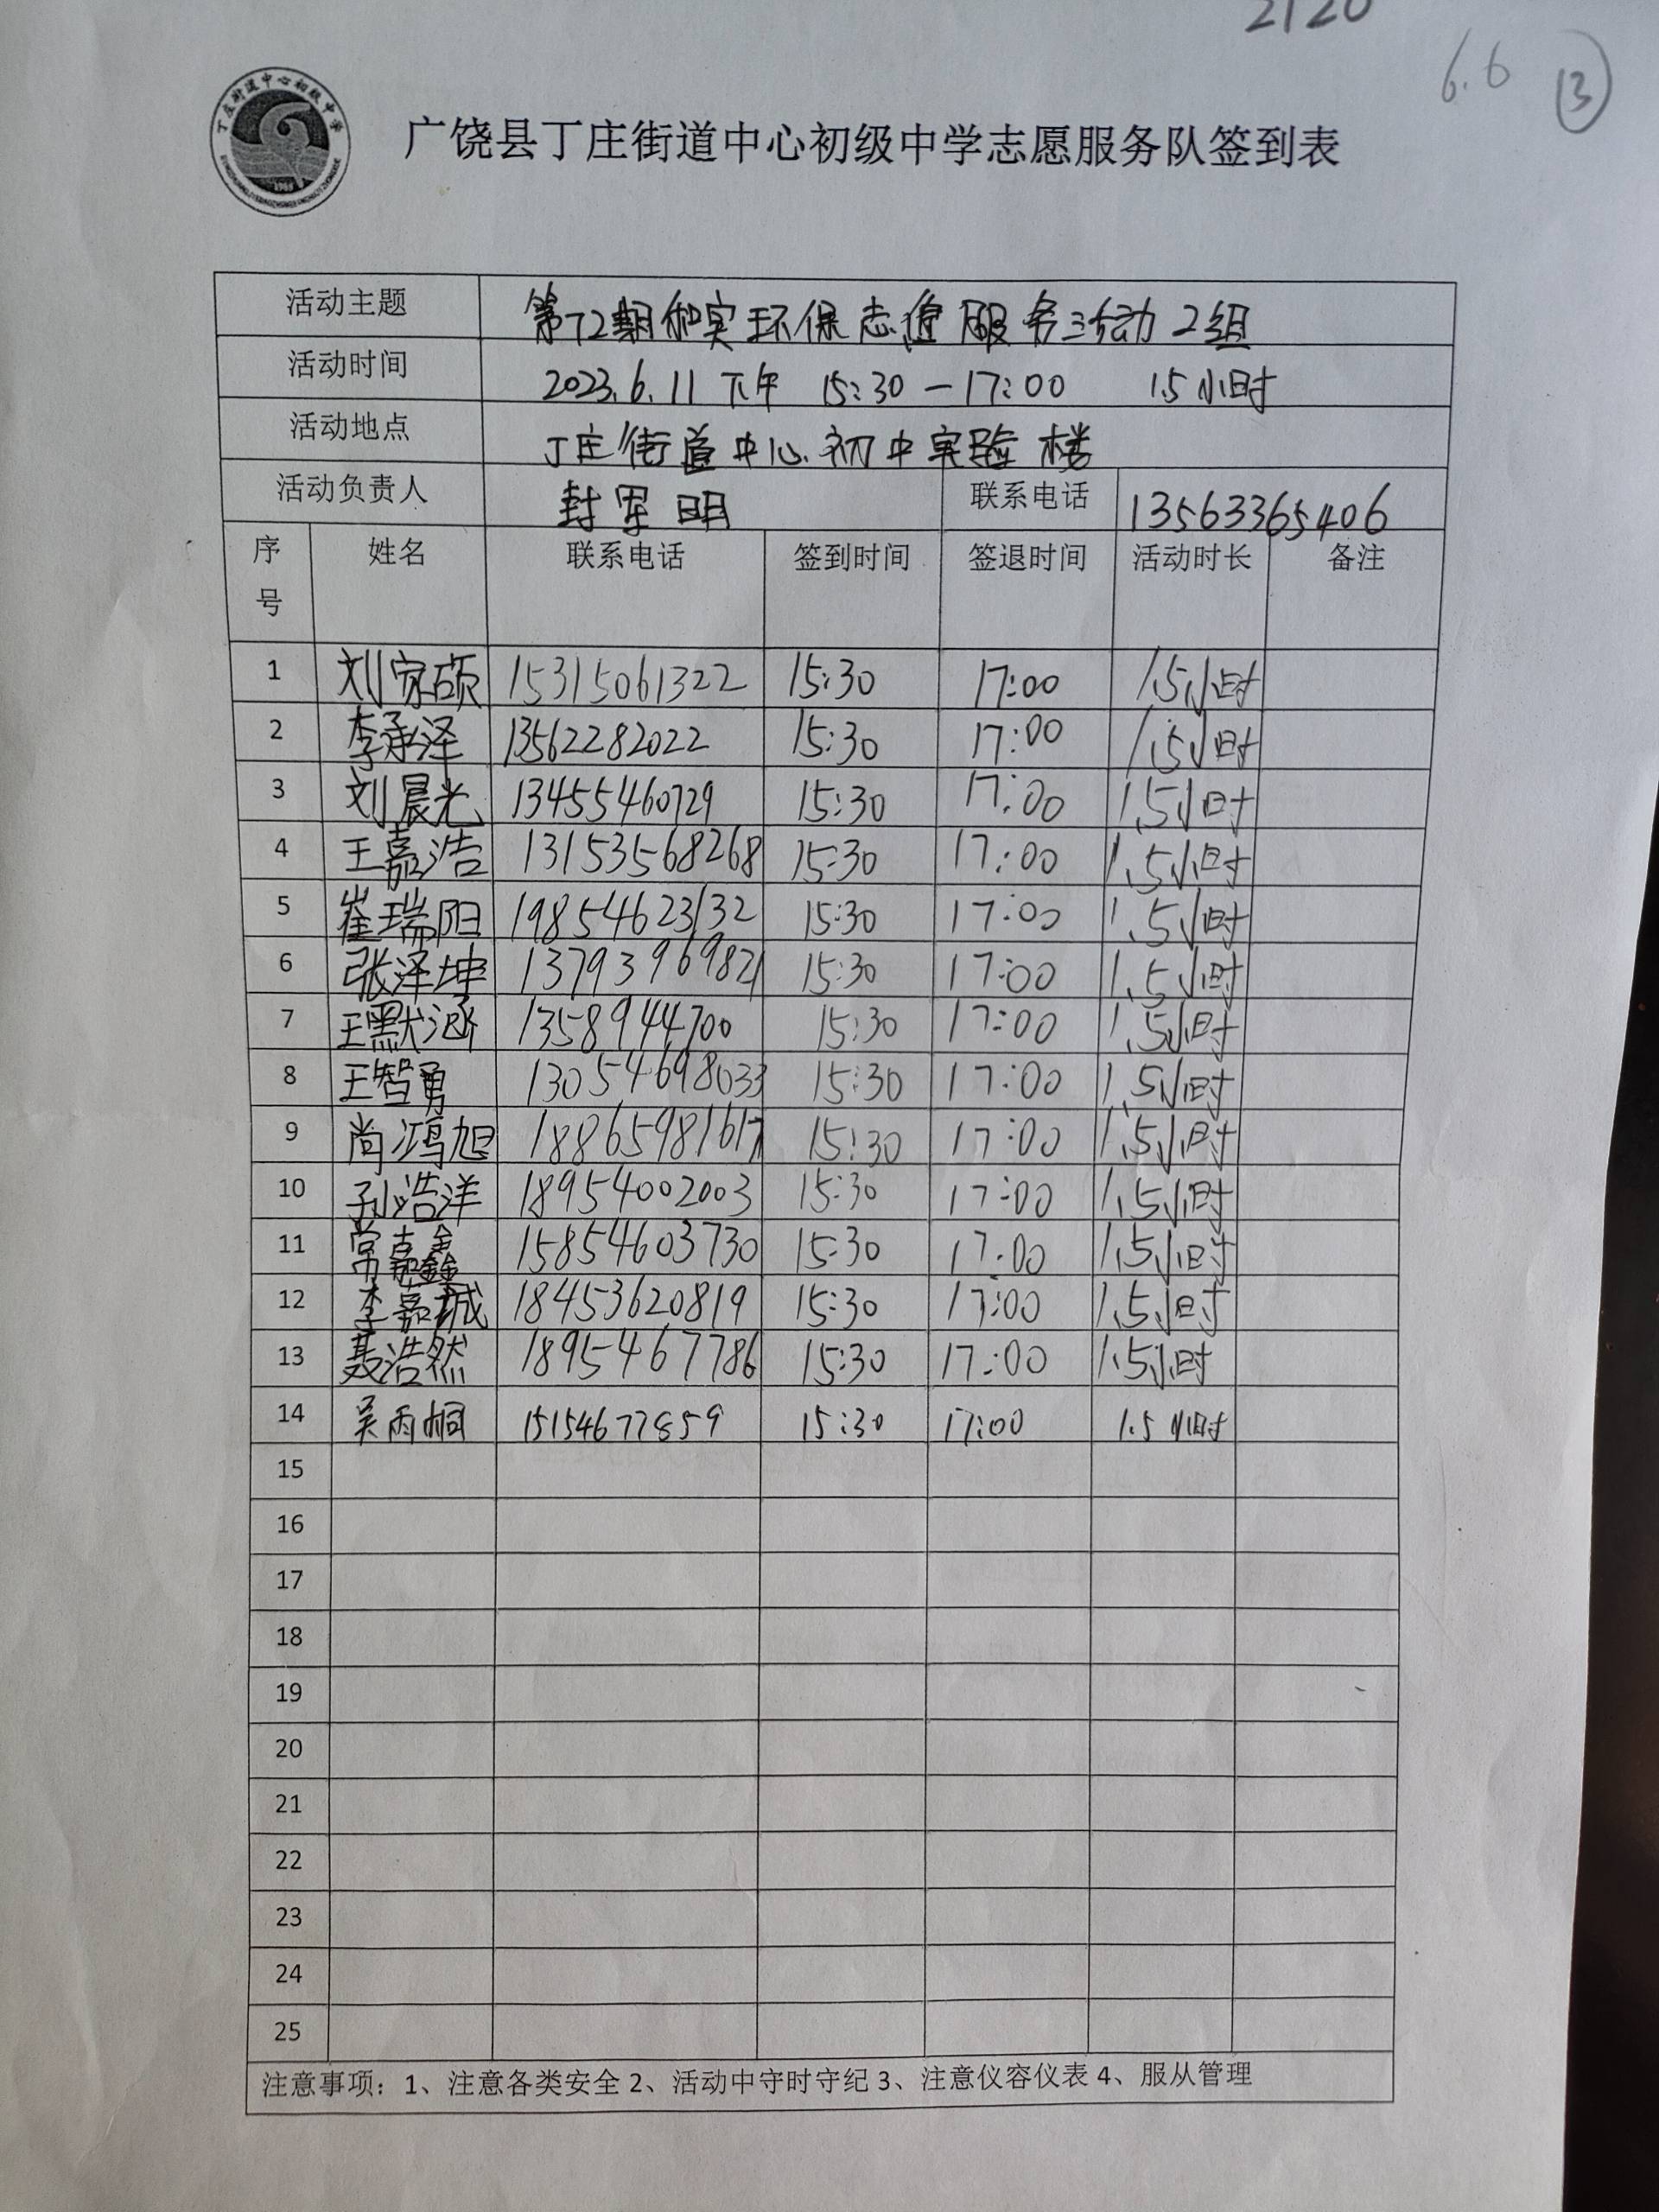 2120
6.6 ⑬
丁庄街道中心初级中学
1985
广饶县丁庄街道中心初级中学志愿服务队签到表
活动主题 第72期和实环保志愿服务活动2组
活动时间 2023.6.11下午 15:30—17:00 1.5小时
活动地点 丁庄街道中心初中实验楼
活动负责人 封军明 联系电话 13563365406
序号 姓名 联系电话 签到时间 签退时间 活动时长 备注
1 刘家硕 15315061322 15:30 17:00 1.5小时
2 李承泽 13562282022 15:30 17:00 1.5小时
3 刘晨光 13455460729 15:30 17:00 1.5小时
4 王嘉浩 13153568268 15:30 17:00 1.5小时
5 崔瑞阳 19854623132 15:30 17:00 1.5小时
6 张泽坤 13793969821 15:30 17:00 1.5小时
7 王默涵 1358944700 15:30 17:00 1.5小时
8 王智勇 13054698033 15:30 17:00 1.5小时
9 尚鸿旭 18865981617 15:30 17:00 1.5小时
10 孙浩洋 18954002003 15:30 17:00 1.5小时
11 常嘉鑫 15854603730 15:30 17:00 1.5小时
12 李嘉城 18453620819 15:30 17:00 1.5小时
13 聂浩然 1895467786 15:30 17:00 1.5小时
14 吴雨桐 15154677859 15:30 17:00 1.5小时
15
16
17
18
19
20
21
22
23
24
25
注意事项：1、注意各类安全 2、活动中守时守纪 3、注意仪容仪表 4、服从管理